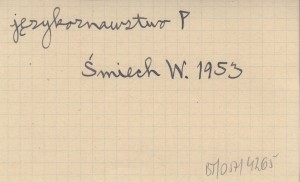 językoznawstwo P
Śmiech W. 1953
BJ/057/4265